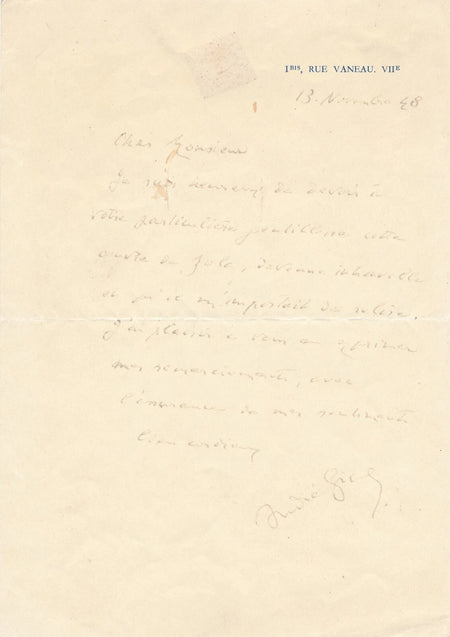 1BIS, RUE VANEAU. VIIE
13 Novembre 48
Cher Monsieur
Je suis heureux de devoir à
votre particulière gentillesse cette
de Zola, devenue introuvable
et qu'il m'importait de relire.
J'ai plaisir à vous en exprimer
mes remerciements, avec
l'assurance de mes sentiments
bien cordiaux
André Gide